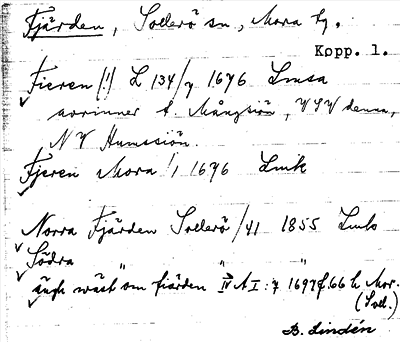 Fjärden, Sollerö sn, Mora tg.
Kopp. l.
Fieren (!) L 134/7 1676 Lmsa
avrinner t. Mångsiön, VSV denna,
NV Hunssiön.
Fjeren Mora !, 1676 Lmk
Norra Fjärden Sollerö /41 1855 Lmk
Södra " " "
ängh wäst om fiärden IV A I:7 1697 f. 66 h Mor.
(Soll.)
B. Lindén